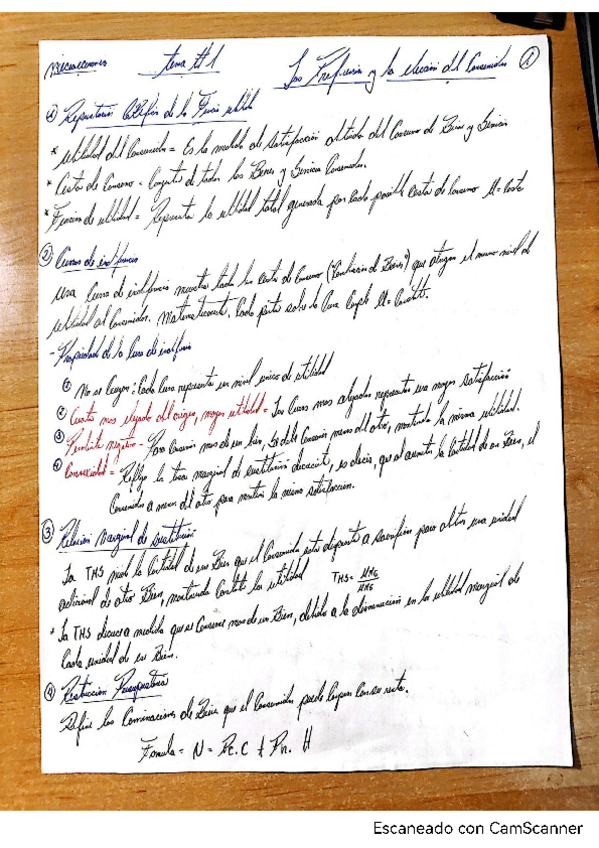 microeconomia tema #1 Las Preferencias y la elección del Consumidor ①
① Representación Gráfica de la Función utilidad
* utilidad del Consumidor = Es la medida de satisfacción obtenida del Consumo de Bienes y Servicios
* Cesta de Consumo = Conjunto de todos los Bienes y Servicios Consumidos.
* Función de utilidad = Representa la utilidad total generada por cada posible cesta de Consumo
② Curvas de indiferencia
una Curva de indiferencia muestra todas las cestas de Consumo ("Combinación de Bienes") que otorgan el mismo nivel de
utilidad al Consumidor. Matematicamente, Cada punto sobre la Curva Cumple
- Propiedades de la Curva de indiferencia
① No se Cruzan: Cada Curva representa un nivel unico de utilidad
② Cuanto mas alejado del origen, mayor utilidad = Las Curvas mas alejadas representan una mayor satisfacción
③ Pendiente negativa - Para Consumir mas de un bien, Se debe Consumir menos del otro, manteniendo la misma utilidad.
④ Convexidad = Refleja la tasa marginal de sustitución decreciente, es decir, que al aumentar la Cantidad de un Bien, el
Consumidor a menos del otro para mantener la misma satisfacción.
③ Relación Marginal de sustitución
La TMS mide la Cantidad de un Bien que el Consumidor esta dispuesto a sacrificar para obtener una unidad
adicional de otro Bien, manteniendo Constante la utilidad TMS =
* La TMS decrece a medida que se Consume mas de un Bien, debido a la disminución en la utilidad marginal de
Cada unidad de ese Bien.
④ Restricción Presupuestaria
Define las Combinaciones de Bienes que el Consumidor puede Comprar Con su renta.
Formula = N = Pc. C + Pn. H
Escaneado con CamScanner